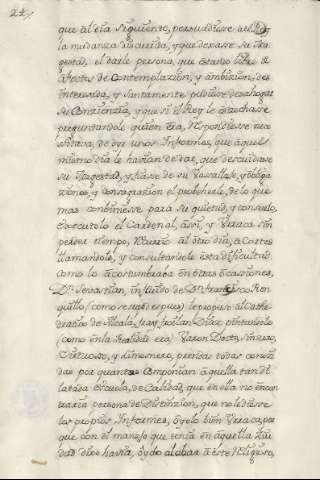 24
que al dia siguiente, persuadiese al Rey
la mudanza discurrida, y que dexase su Ma
gestad, el darle persona, que estando libre de
afectos de Contemplazion, y ambizion, des
interesada, y santamente pudiese desahogar
su Conzienzia, y que si el Rey le estrechase
preguntandole quien era, Respondiese nece
sitava, de oyr unos Informes, que aquel
mismo dia le havian de dar, que descuidase
su Magestad, y fiase de su Vasallaje, y obliga
ziones, y consagrazion el proponerle, de lo que
mas combiniese para su quietud, y consuelo.
Executolo el Cardenal, assi, y Urraca sin
perder tiempo, llamò al otro dia, a Cortes
llamandole, y consultandole esta dificultad
como lo acostumbrava en otras ocasiones,
Dn. Sevastian, in fluido de Dn. Francisco Ron
quillo (como se sepò despues) le propuso al Cathe
dratico de Alcalà, fray Froilan Diaz, pintandole
(como en la Realidad era) Varon Docto, sincero,
Virtuoso, y limosnero, prendas todas conozi
das por quantos Componian aquella tan di
latada Escuela, de Calidad, que en ella no encon
traria persona de Distinzion, que no le diese
los propios Informes, oyolo bien Urraca, por
que con el manejo que tenia en aquella Ziu
dad dias havia, oydo alabar à este Religioso,